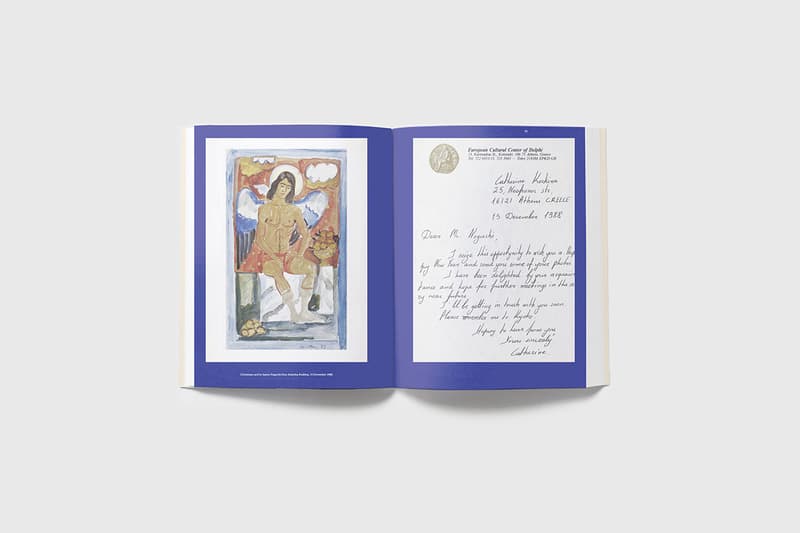 European Cultural Center of Delphi
Athens, Greece
Catherine
25, str.
16121 Athens GREECE
13 December 1988
Dear Mr. Noguchi,
I seize this opportunity to wish you a Hap
py New Year and send you some of your photos.
I have been delighted by your acquain
tance and hope for further meetings in the ve
ry near future.
I'll be getting in touch with you soon.
Please remember me to Kyoko.
Hoping to hear from you
Yours sincerely
Catherine
Christmas card to Isamu Noguchi from Katerina 13 December 1988